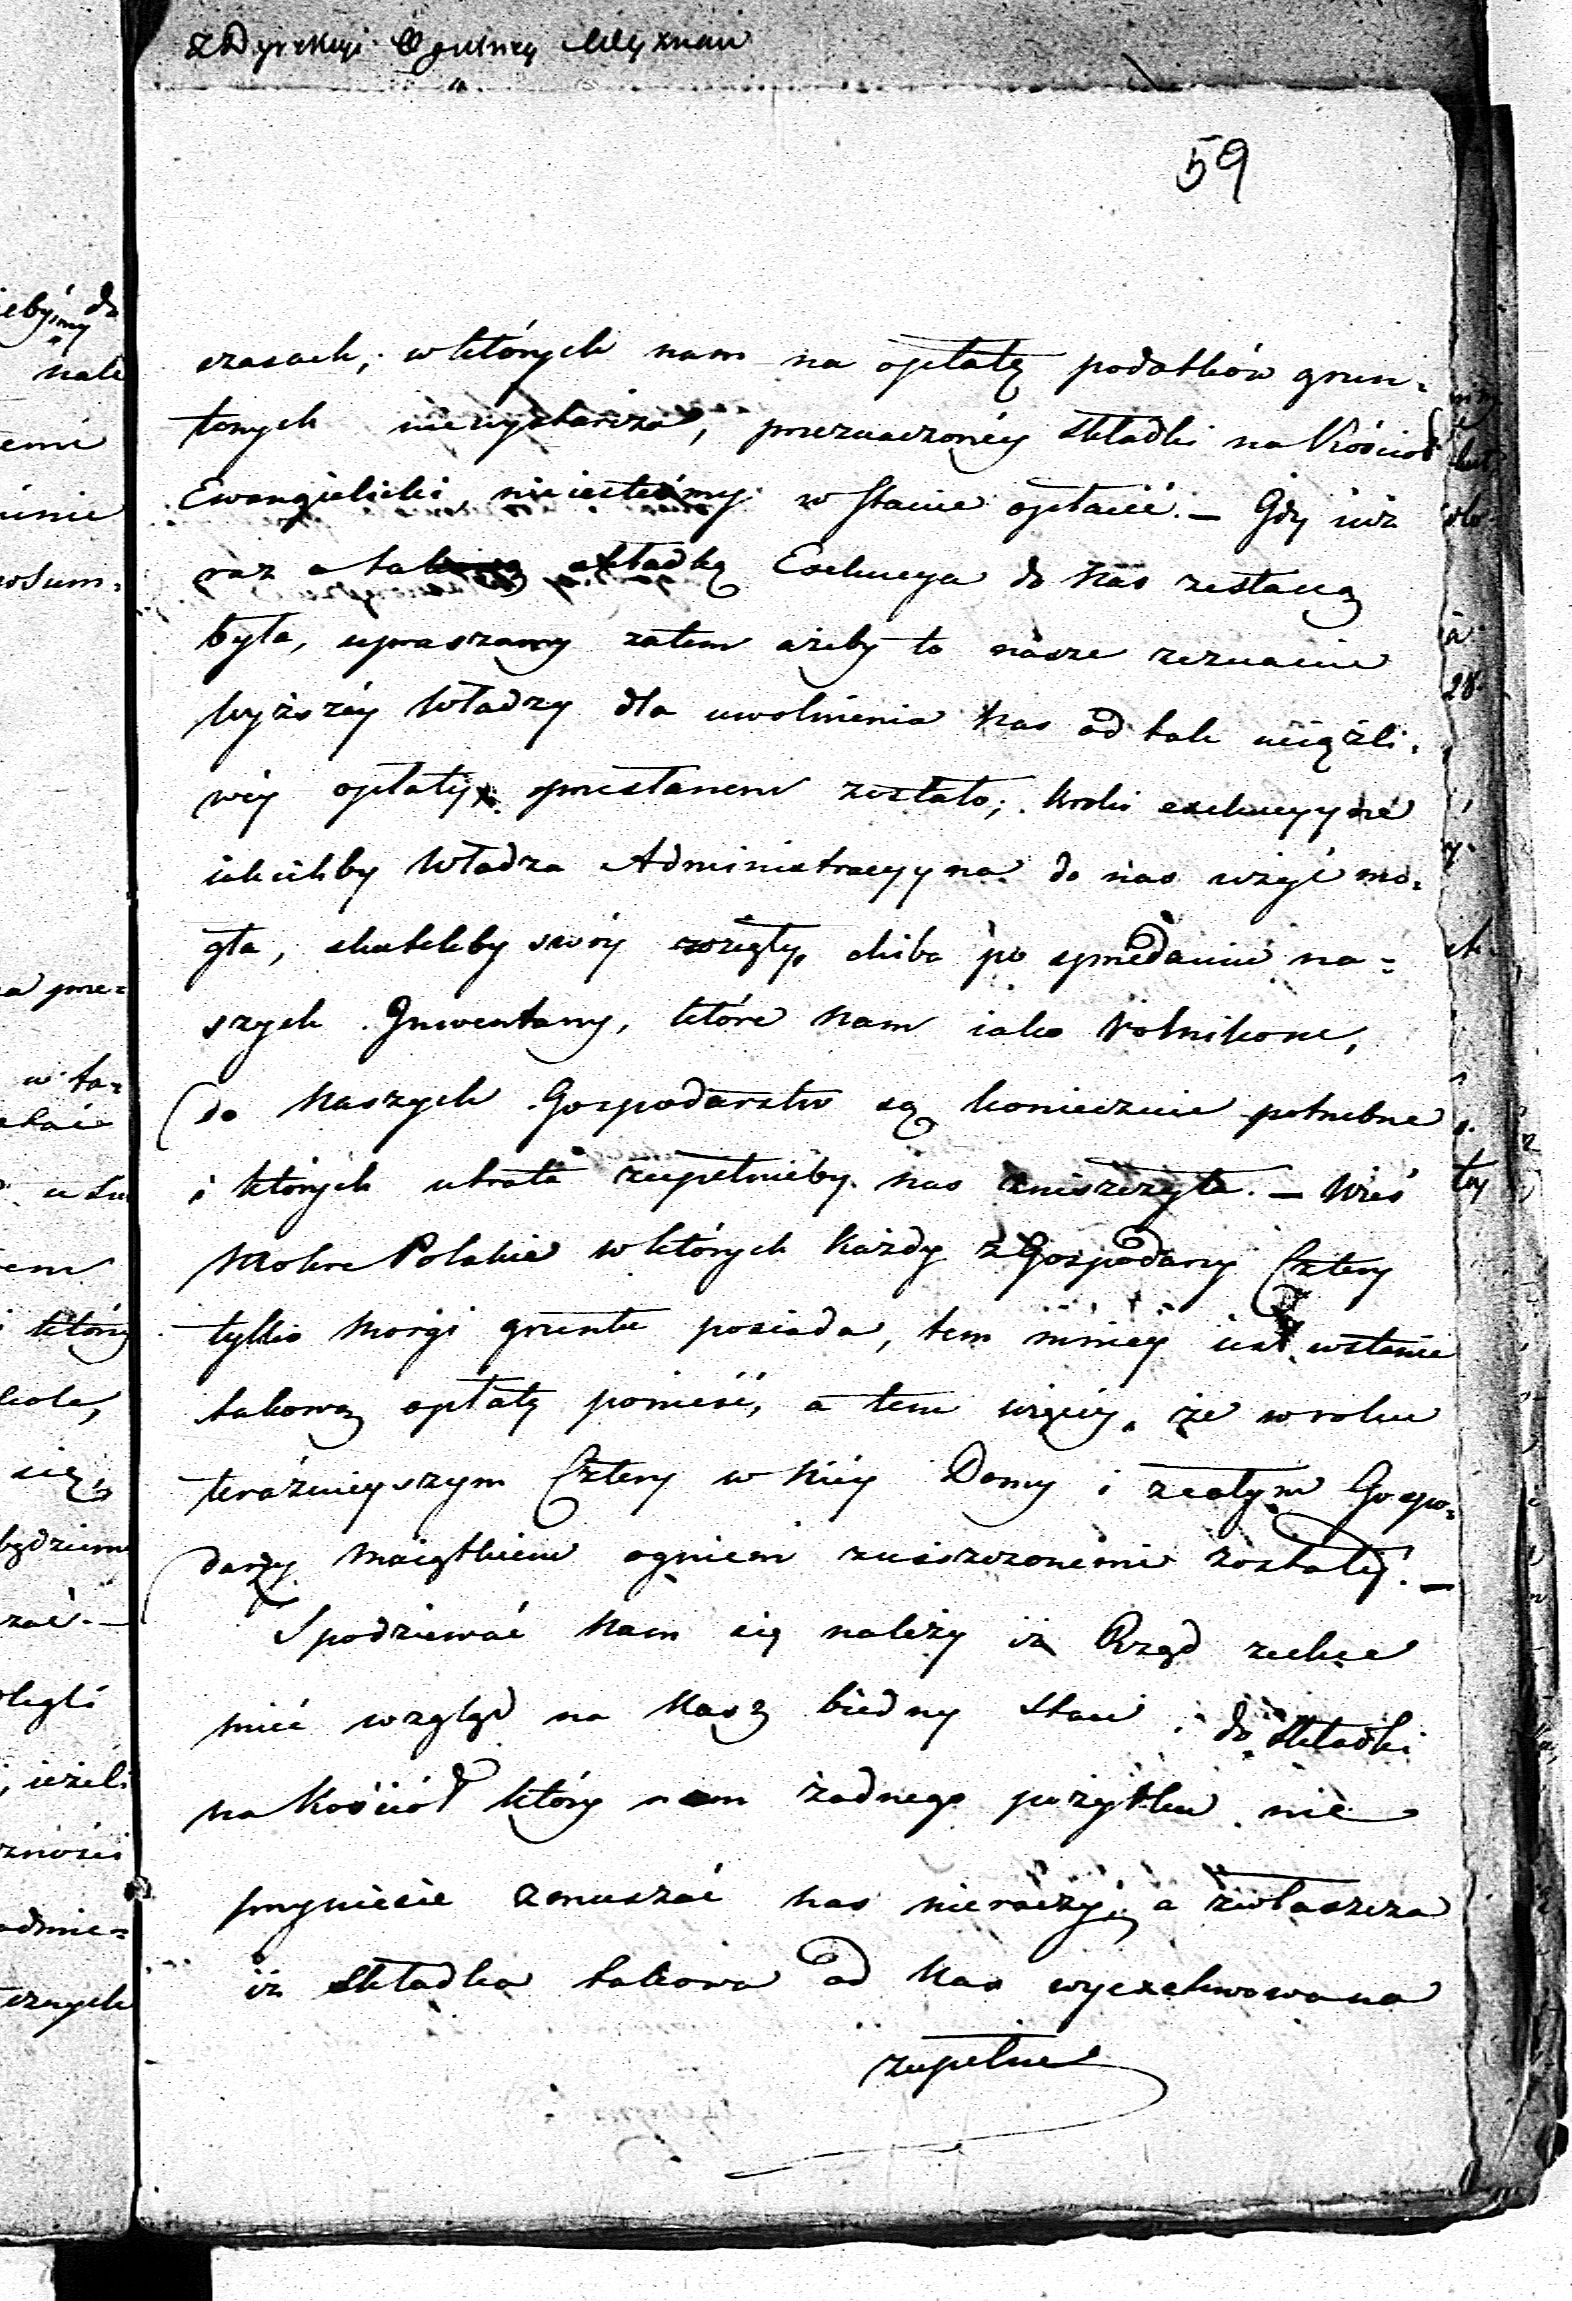 59
czasach, w których nam na opłatę podatków grun=
towych niewystarcza, przeznaczonéy składki na Kościoł
Ewangielicki, nie iesteśmy w stanie opłacić. — Gdy iuż
raz o takową składkę Exekucya do Nas zesłaną
była, upraszamy zatem ażeby to nasze zeznanie
Wyższéy Władzy dla uwolnienia Nas od tak uciążli=
wéy opłaty przesłanem zostało; Kroki exekucyyne
iakichby Władza Administracyyna do nas użyć mo=
gła, skutekby swóy wzięły, chiba po sprzedaniu na=
szych Inwentarzy, które Nam iako Rolnikom,
do Naszych Gospodarstw są koniecznie potrzebne
i których utrata zupełnieby nas zniszczyła. — Wieś
Mokre Polskie w których każdy z Gospodarzy Cztery
tylko Morgi gruntu posiada, tem mniéy iest wstanie
takową opłatę ponieść, a tem więcéy, że w roku
teraźnieyszym Cztery w Niéy Domy i z całym Gospo=
darzy Maiątkiem ogniem zniszczonemi zostały. —
Spodziewać Nam się należy iż Rząd zechce
mieć wzgląd na Nasz biedny stan i do składki
na Kościoł który nam żadnego pożytku nie
przyniesie zmuszać nas nieraczy, a zwłaszcza
iż Składka takowa od Nas wyexekwowana
zupełne